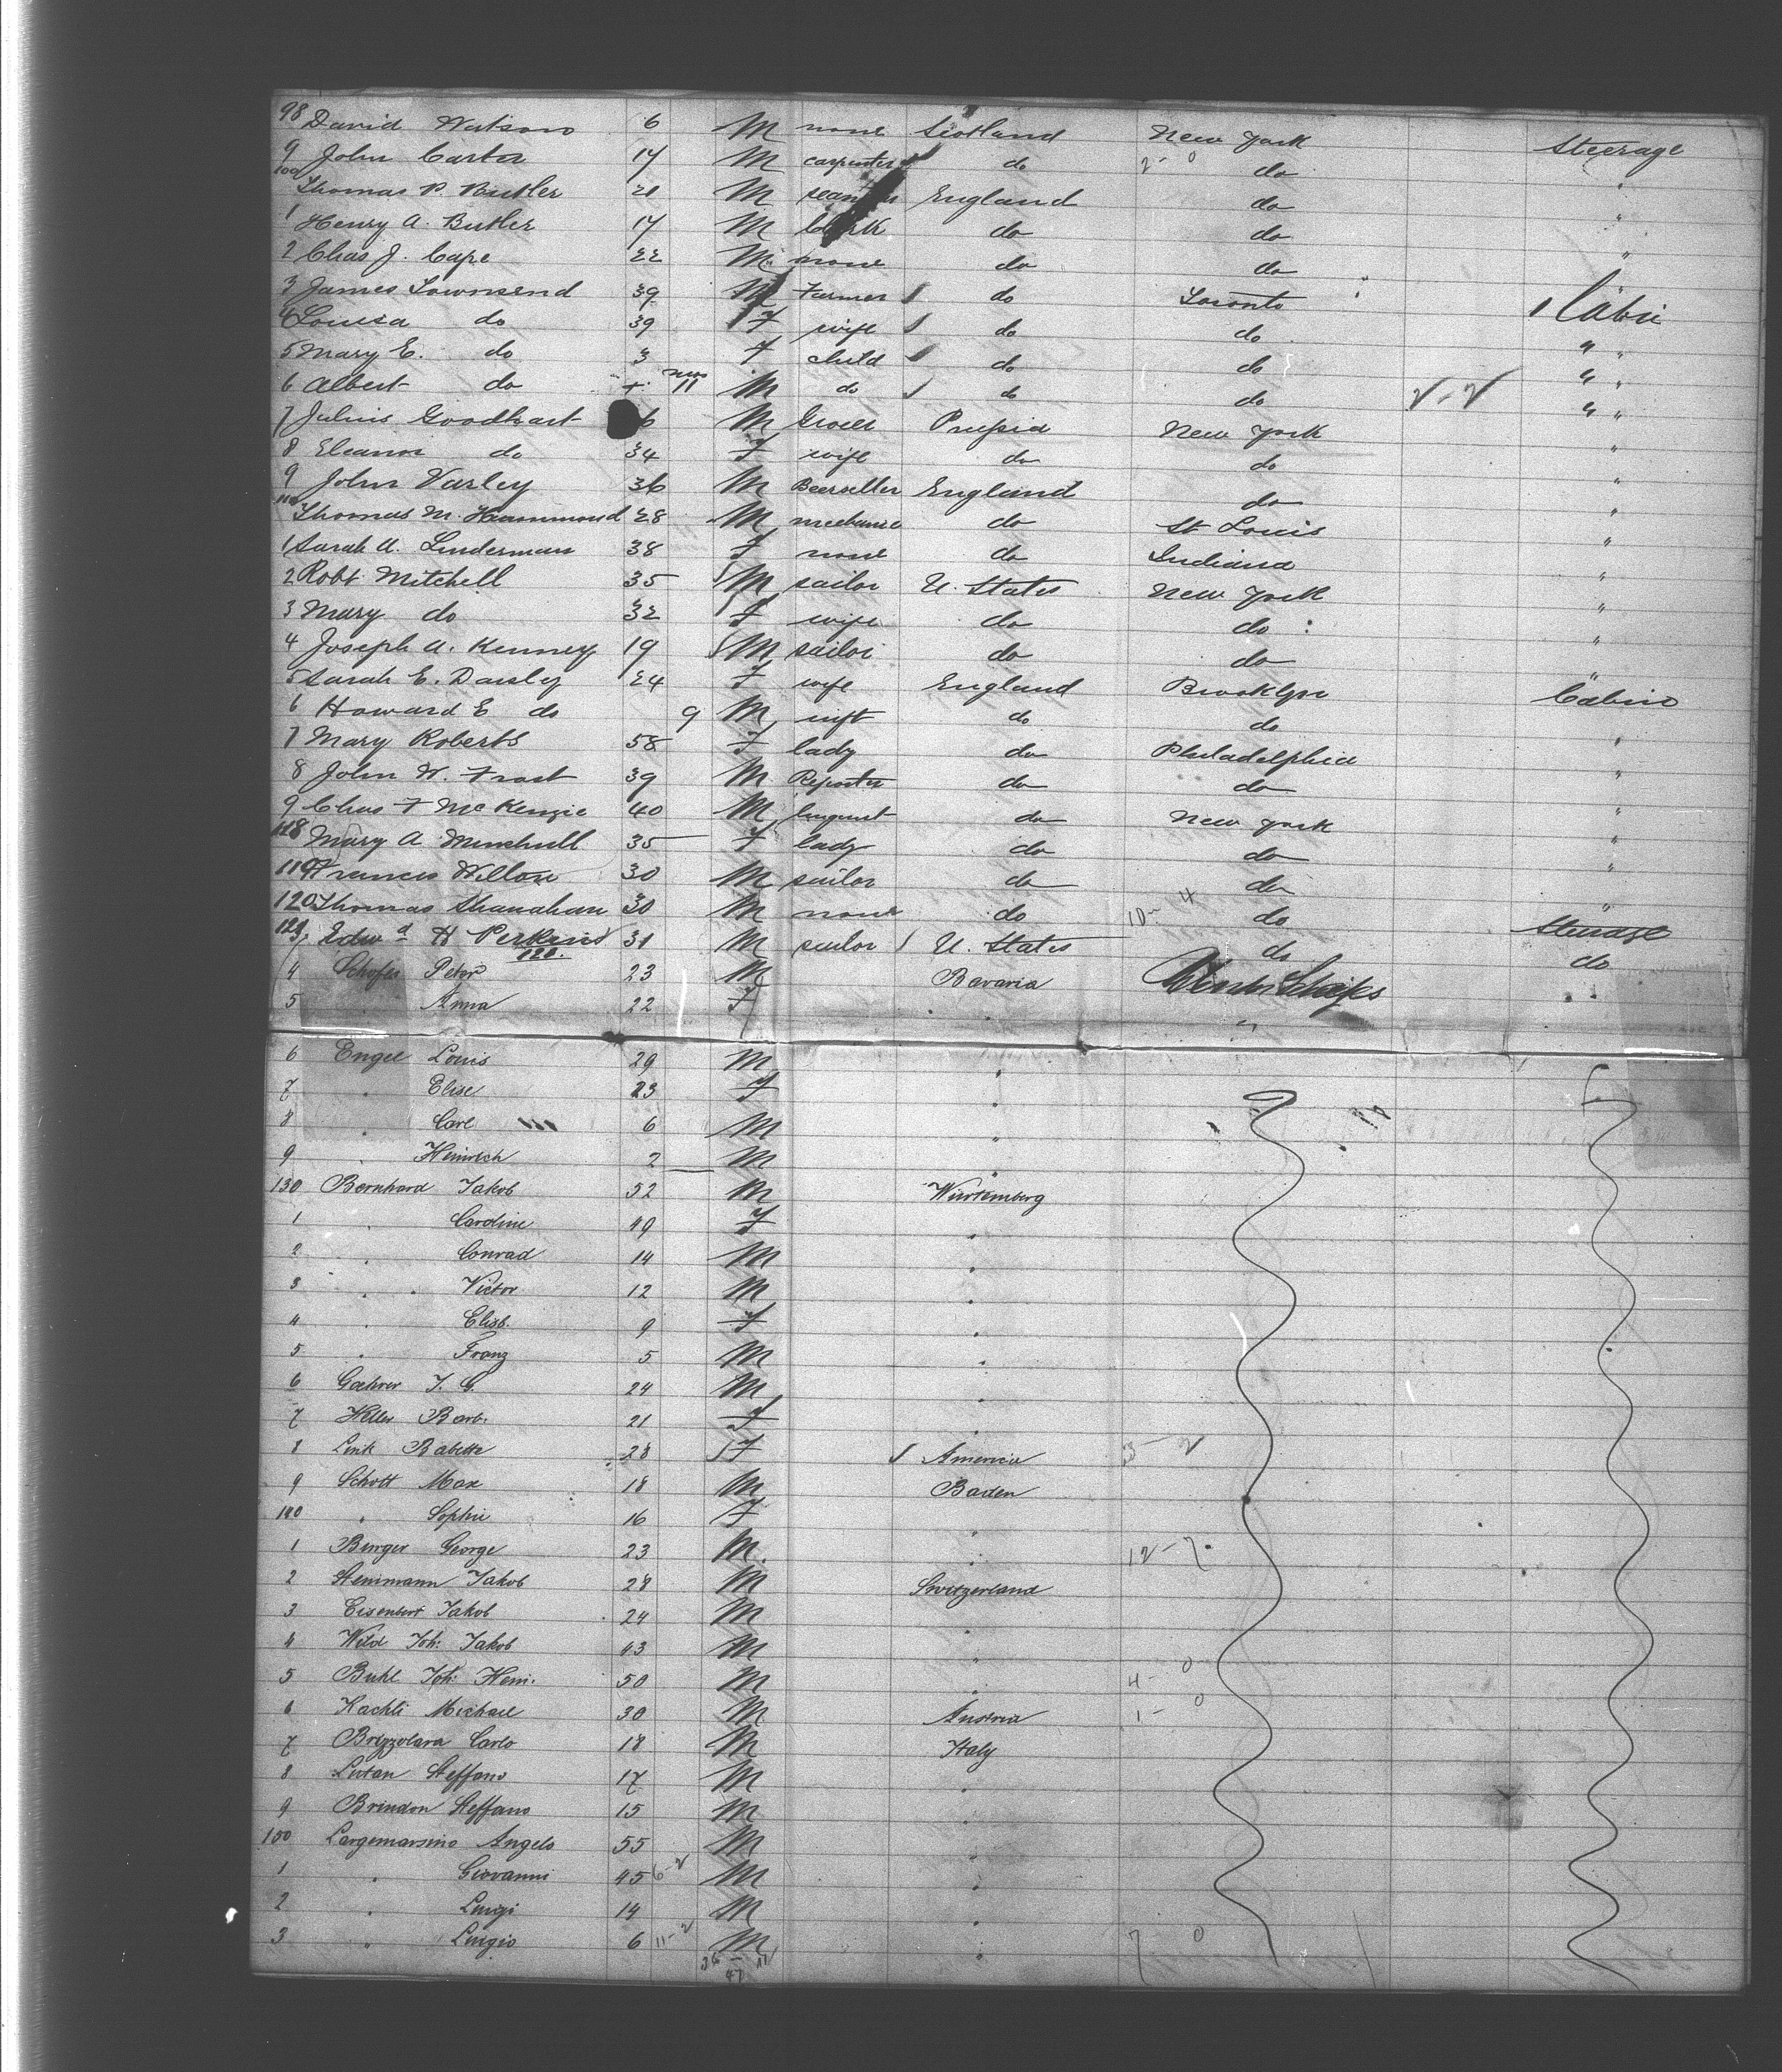 98 David Watson 6 M none Scotland New York Steerage
9 John Carter 17 M carpenter do 2-0 do "
100 Thomas P. Butler 21 M seaman England do "
1 Henry A. Butler 17 M Clerk do do "
2 Chas J. Cape 22 M none do do
3 James Townsend 39 M Farmer do Toronto 1 Cabin
4 Louisa do 39 F wife do do " "
5 Mary E. do 3 F child do do " "
6 Albert do mos 11 M do do do " "
7 Julius Goodhart 6 M Grocer Prussia New York "
8 Eleanor do 34 F wife do do "
9 John Varley 36 M Beerseller England do "
110 Thomas M. Hammond 28 M mechanic do St Louis "
1 Sarah A. Linderman 38 F none do Indiana "
2 Robt Mitchell 35 M sailor U. States New York "
3 Mary do 32 F wife do do "
4 Joseph A. Kenney 19 M sailor do do "
5 Sarah E. Daisley 24 F wife England Brooklyn Cabin
6 Howard E do 9 M inft do do "
7 Mary Roberts 58 F lady do Philadelphia "
8 John W. Frost 39 M Reporter do do "
9 Chas F McKenzie 40 M do New York "
118 Mary A Minshull 35 F lady do do "
119 Francis Wilson 30 M sailor do do "
120 Thomas Shanahan 30 M none do 10-4 do Steerage
Edwd H Perkins 31 M sailor U. States do do
4 Schofer Peter 23 M Bavaria
5 " Anna 22 F " "
6 Engel Louis 29 M "
7 " Elise 23 F "
8 " Carl 6 M "
9 " Heinrich 2 M "
130 Bernhard Jakob 52 M Würtemberg
1 " Caroline 49 F "
2 " Conrad 14 M "
3 " " Victor 12 M "
4 " Elisb. 9 F "
5 " Franz 5 M "
6 Goehrer J. G. 24 M "
7 Heller Barb. 21 F "
8 Link Babette 28 F America 3-2
9 Schott Max 18 M Baden
140 " Sophie 16 F "
1 Burger George 23 M " 12-7
2 Steinmann Jakob 28 M Switzerland
3 Eisenbert Jakob 24 M "
4 Wild Joh: Jakob 43 M "
5 Buhl Joh: Hein. 50 M " 4-0
6 Kachli Michael 30 M Austria 1-0
7 Brizzolara Carlo 18 M Italy
8 Lutan Steffano 17 M "
9 Brindon Steffano 15 M "
150 Largomarsino Angelo 55 M "
1 " Giovanni 45 6-2 M "
2 " Luigi 14 M "
3 " Luigio 6 11-2 M " 7 0
36 - 11
47